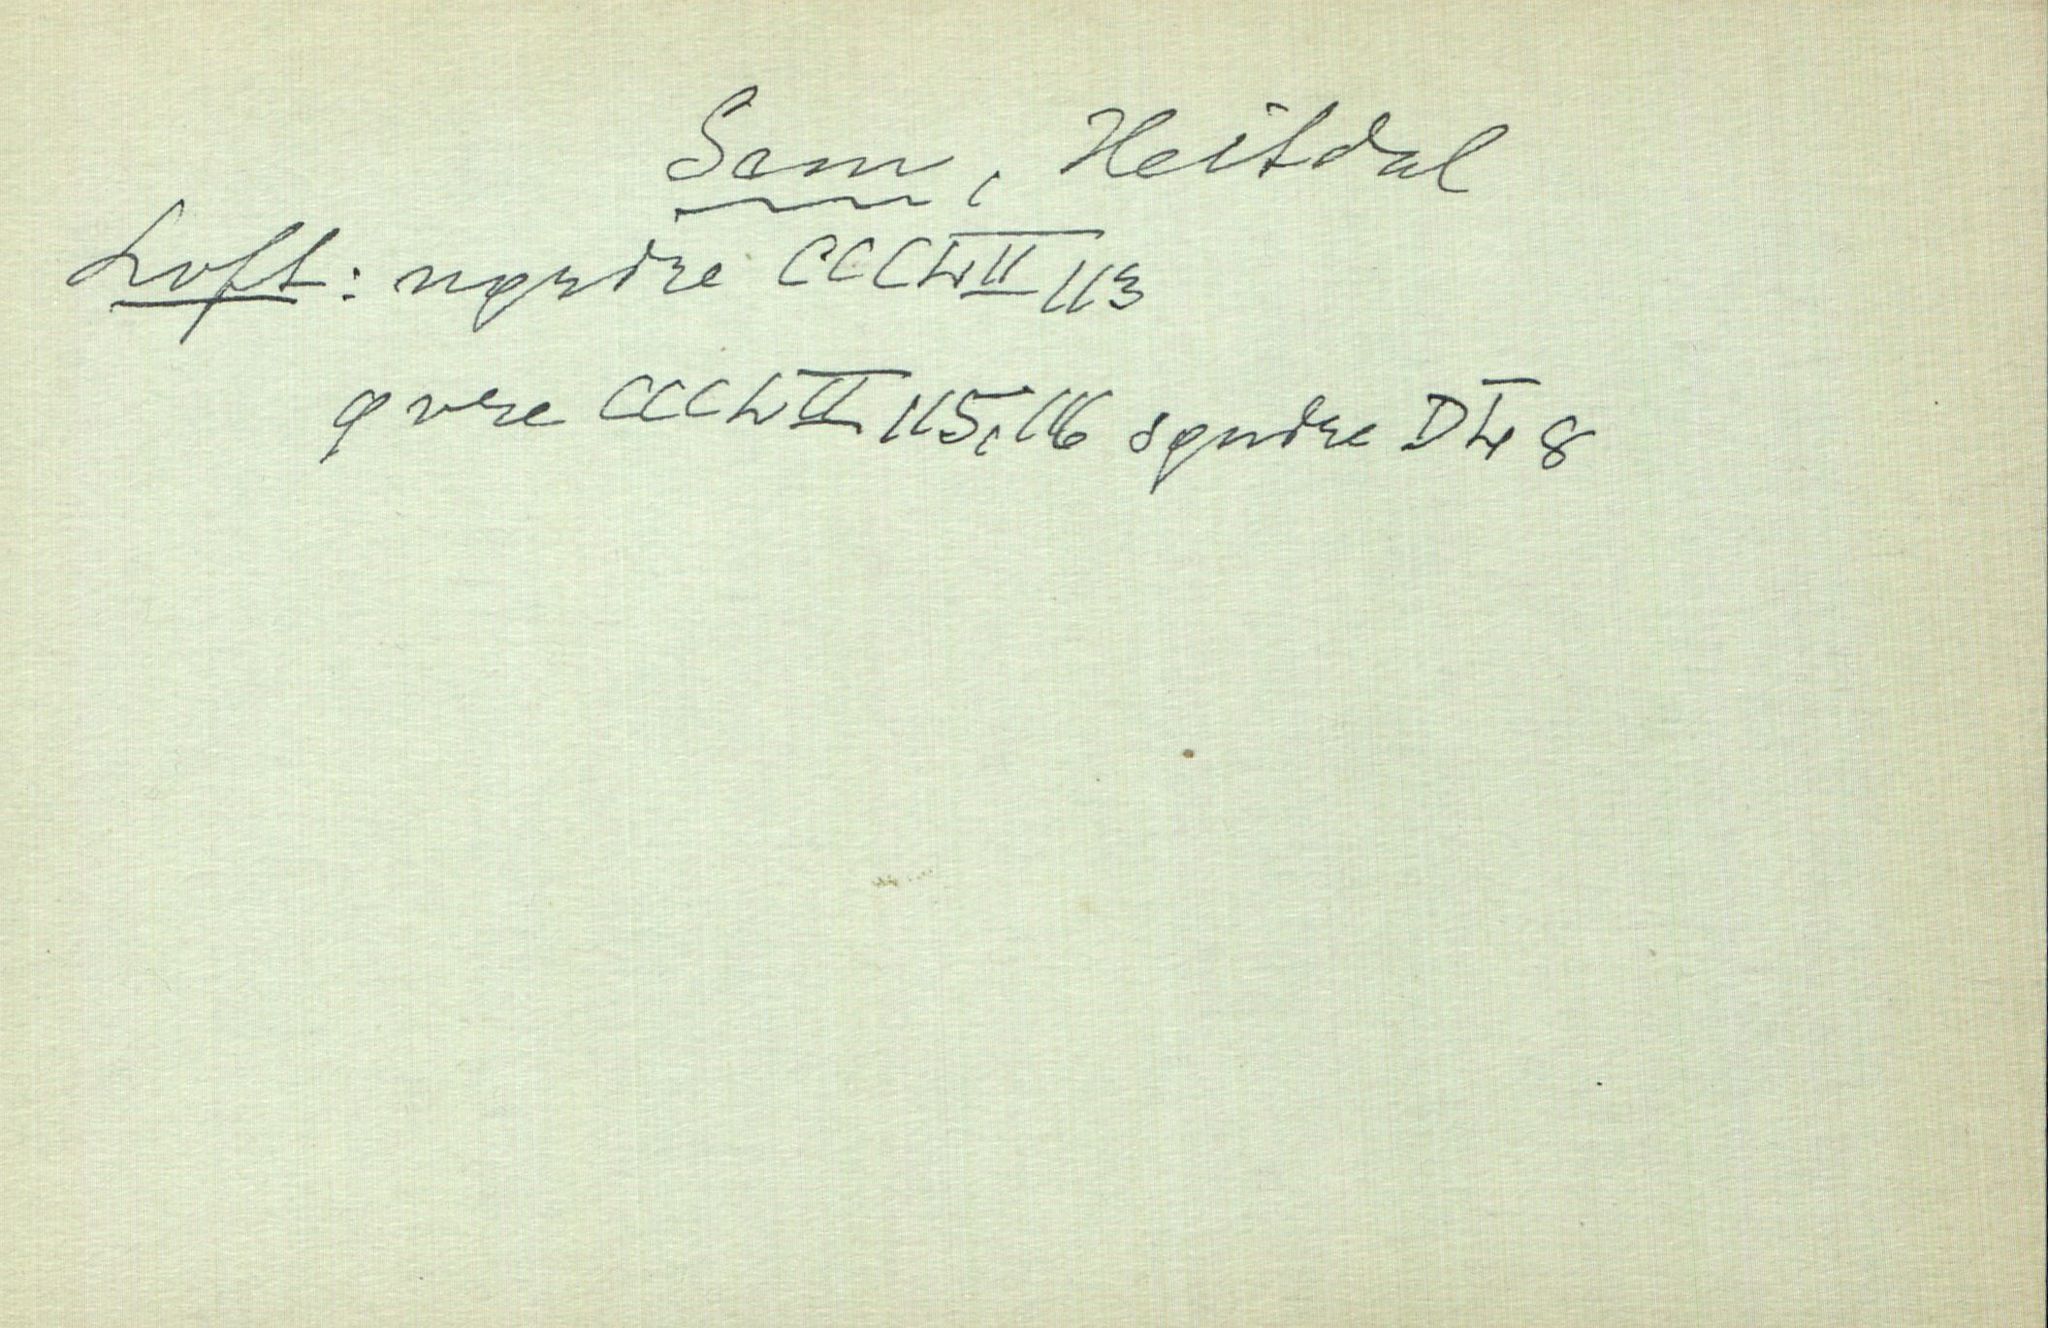 Sem, Heitdal
Loft: nqndre CCCLVII 113
qvre CCCLVII 115, 116 sqndre DLV 8